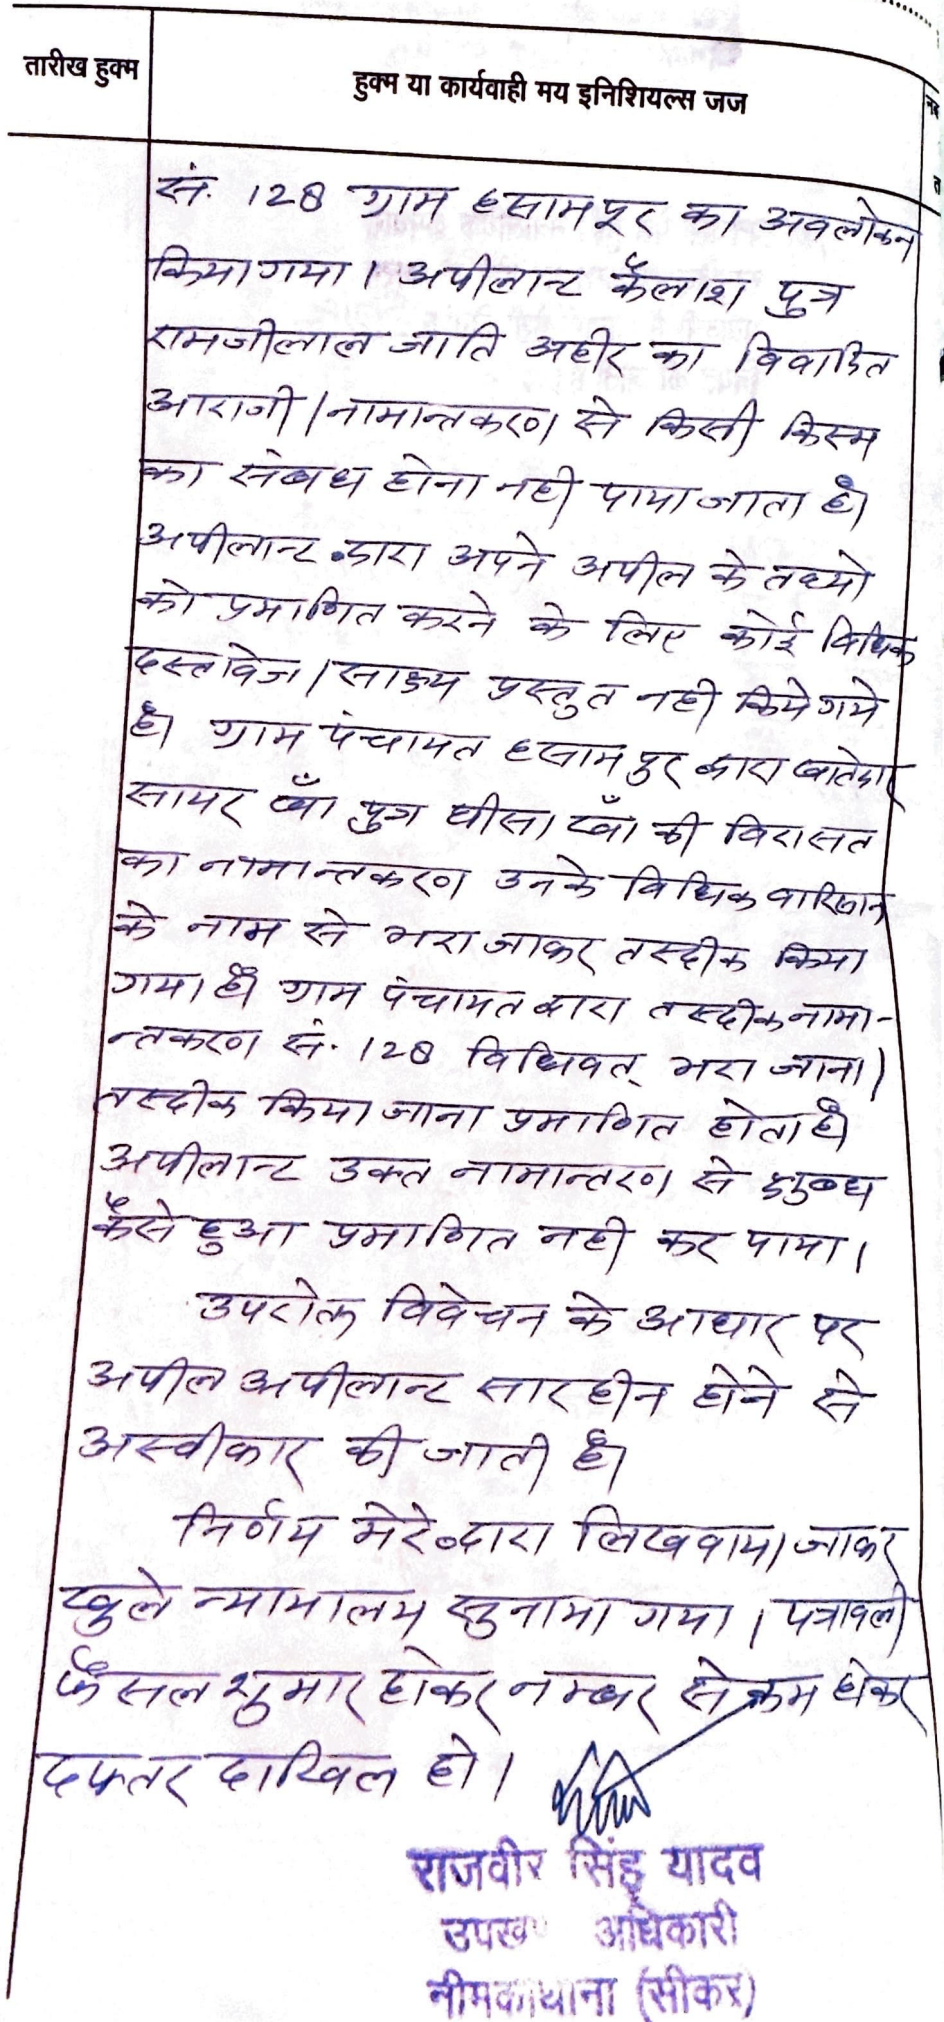 तारीख हुक्म
हुक्म या कार्यवाही मय इनिशियल्स जज
सं. 128 ग्राम हसामपूर का अवलोकन
किया गया। अपीलान्ट कैलाश पुत्र
रामजीलाल जाति अहीर का विवादित
आराजी/नामान्तकरण से किसी किस्म
का संबध होना नही पाया जाता है।
अपीलान्ट द्वारा अपने अपील के तथ्यो
को प्रमाणित करने के लिए कोई विधिक
दस्तावेज/साक्ष्य प्रस्तुत नही किये गये
है। ग्राम पंचायत हसामपुर द्वारा खातेदार
सायर खाँ पुत्र घीसा खाँ की विरासत
का नामान्तकरण उनके विधिक वारिसान
के नाम से भरा जाकर तस्दीक किया
गया है। ग्राम पंचायत द्वारा तस्दीक नामा-
न्तकरण सं. 128 विधिवत् भरा जाना/
तस्दीक किया जाना प्रमाणित होता है।
अपीलान्ट उक्त नामान्तरण से क्षुब्ध
कैसे हुआ प्रमाणित नही कर पाया।
उपरोक्त विवेचन के आधार पर
अपील अपीलान्ट सारहीन होने से
अस्वीकार की जाती है।
निर्णय मेरे द्वारा लिखवाया जाकर
खुले न्यायालय सुनाया गया। पत्रावली
फैसल शुमार होकर नम्बर से कम होकर
दफ्तर दाखिल हो।
राजवीर सिंह यादव
उपखण्ड अधिकारी
नीमकाथाना (सीकर)